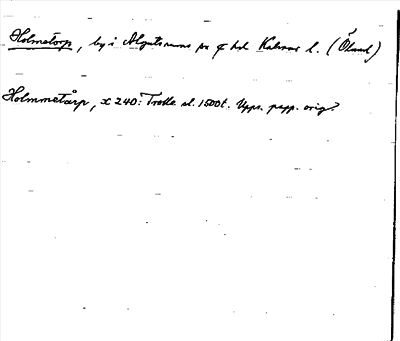 Holmetorp, by i Algutsrums sn o hd Kalmar l. (Öland)
Holmmetårp, x 240: Trolle sl. 1500t. Upps. papp. orig.